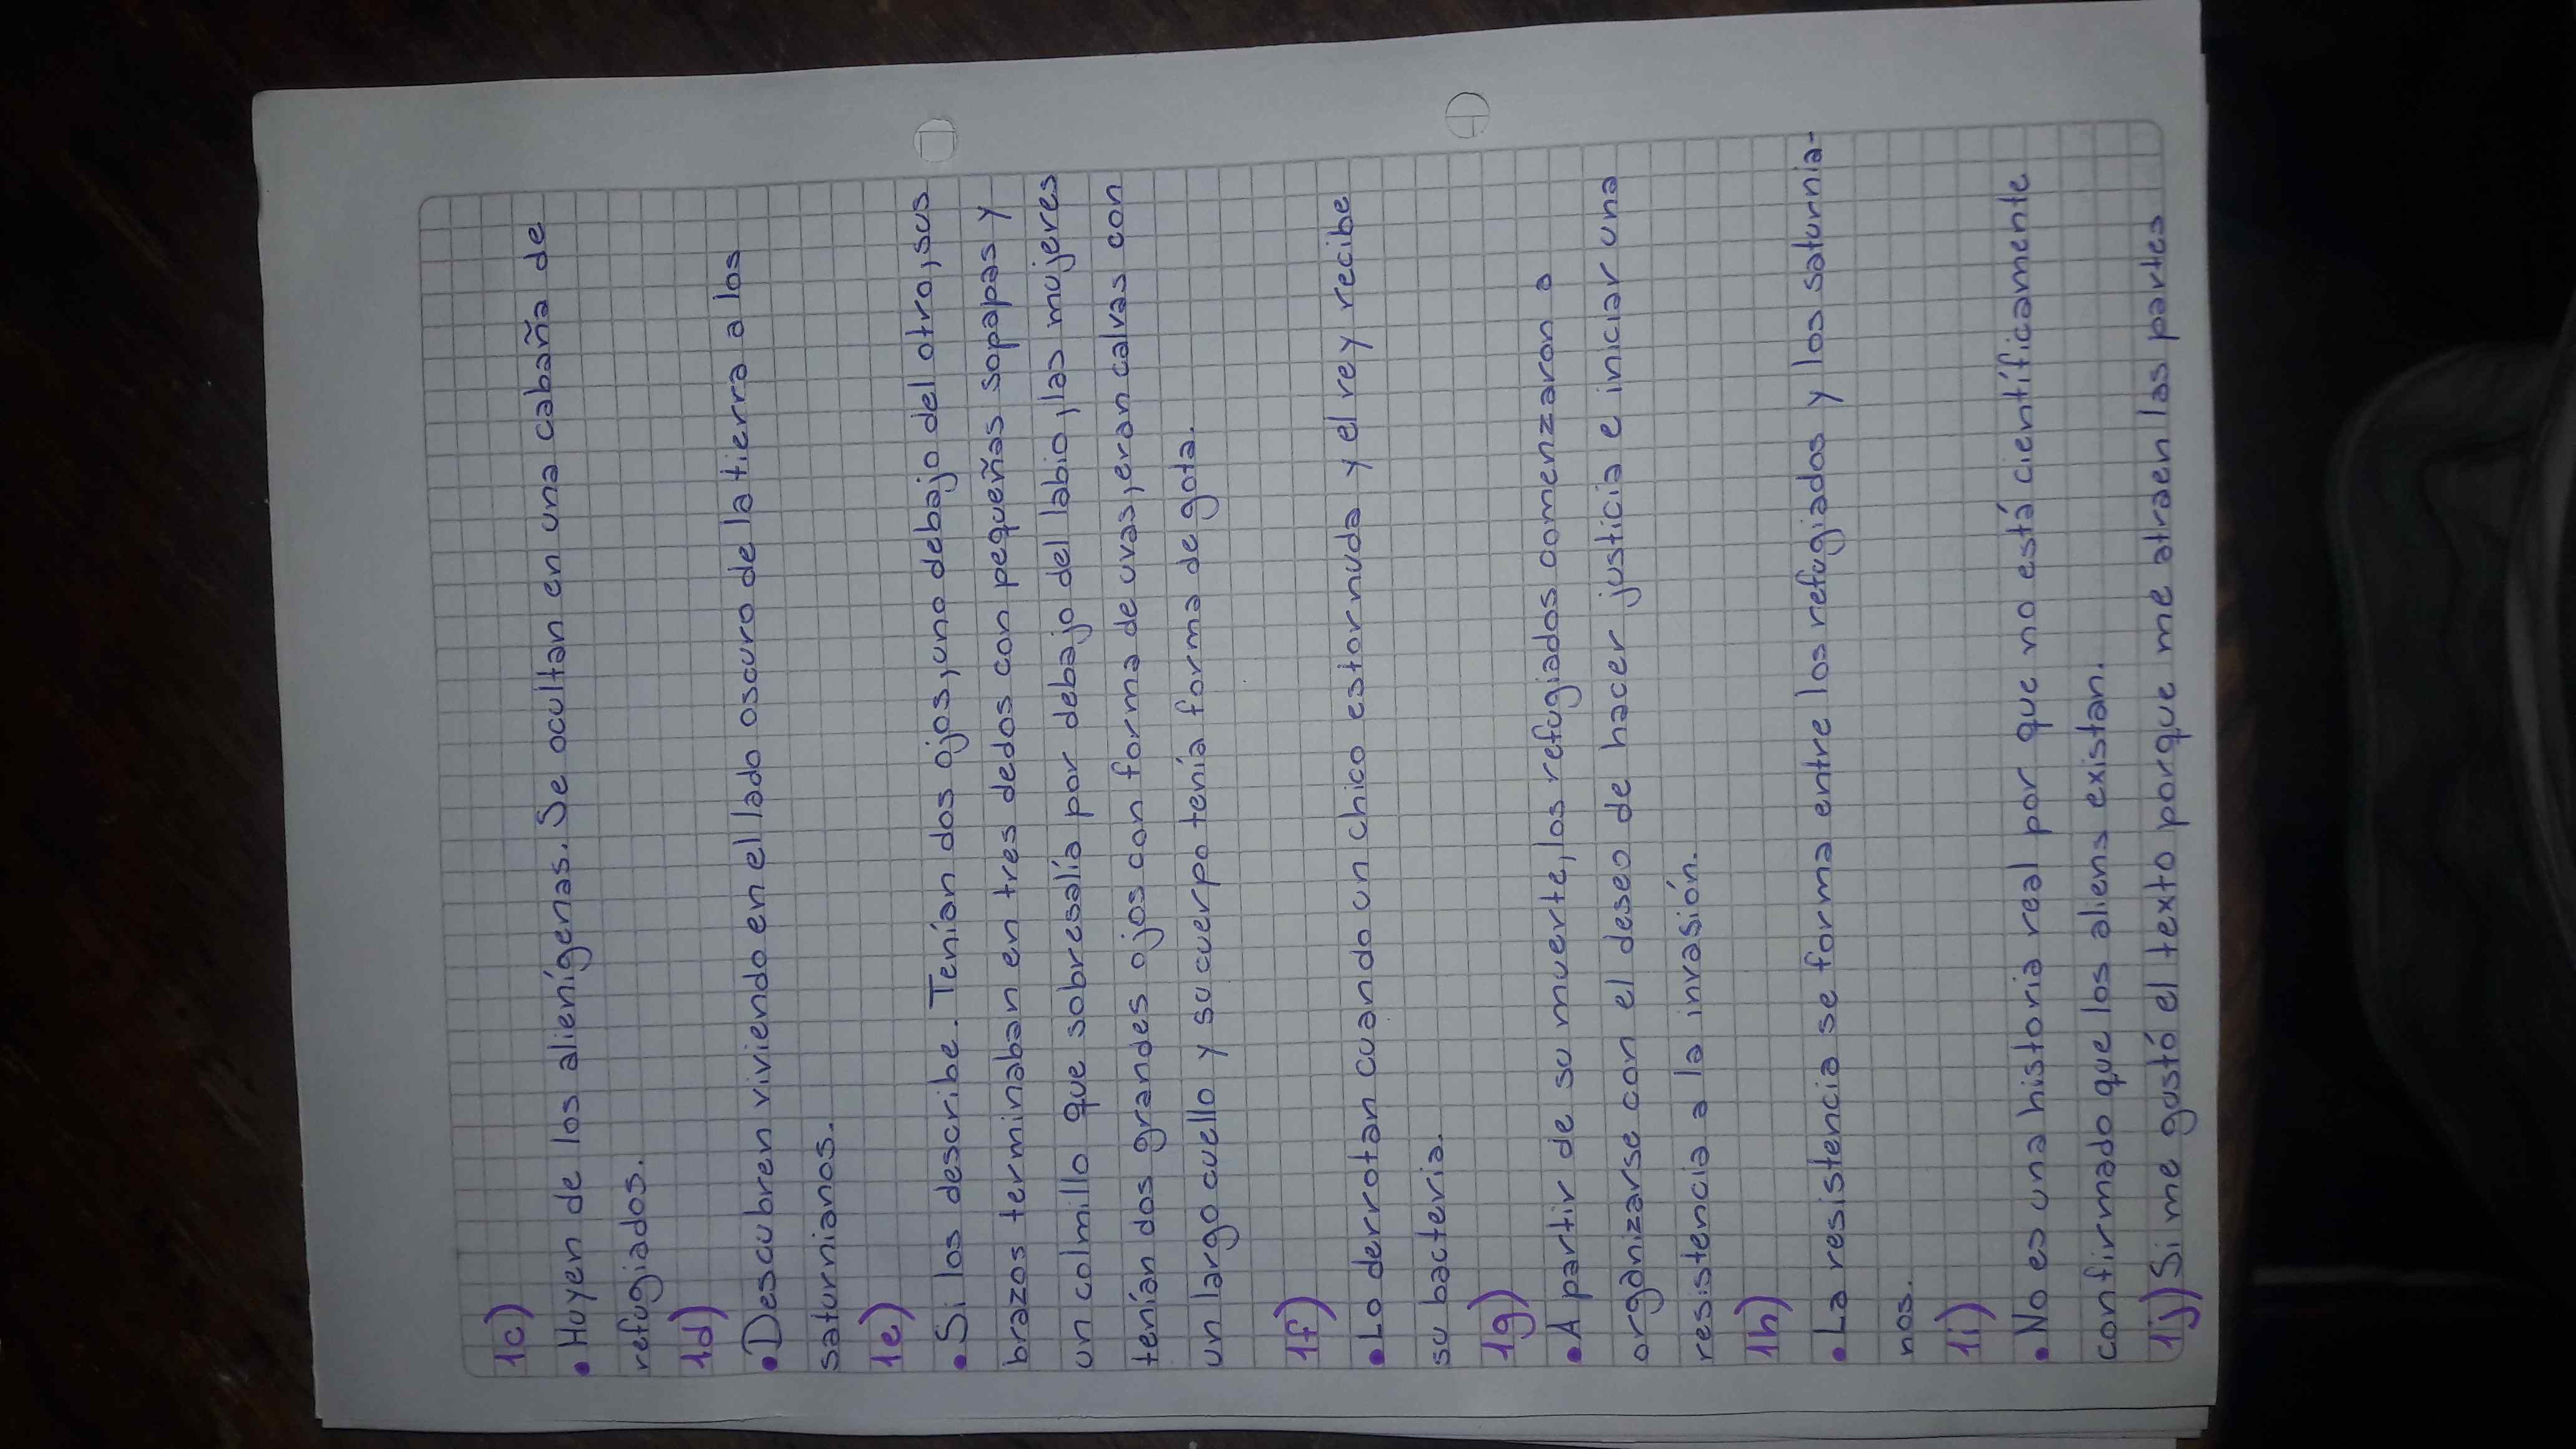 1c)
• Huyen de los alienígenas. Se ocultan en una cabaña de
refugiados.
1d)
• Descubren viviendo en el lado oscuro de la tierra a los
saturnianos.
1e)
• Si los describe. Tenían dos ojos, uno debajo del otro, sus
brazos terminaban en tres dedos con pequeñas sopapas y
un colmillo que sobresalía por debajo del labio, las mujeres
tenían dos grandes ojos con forma de uvas, eran calvas con
un largo cuello y su cuerpo tenía forma de gota.
1f)
• Lo derrotan cuando un chico estornuda y el rey recibe
su bacteria.
1g)
• A partir de su muerte, los refugiados comenzaron a
organizarse con el deseo de hacer justicia e iniciar una
resistencia a la invasión.
1h)
• La resistencia se forma entre los refugiados y los saturnia-
nos.
1i)
• No es una historia real por que no está científicamente
confirmado que los aliens existan.
1j) Si me gustó el texto porque me atraen las partes